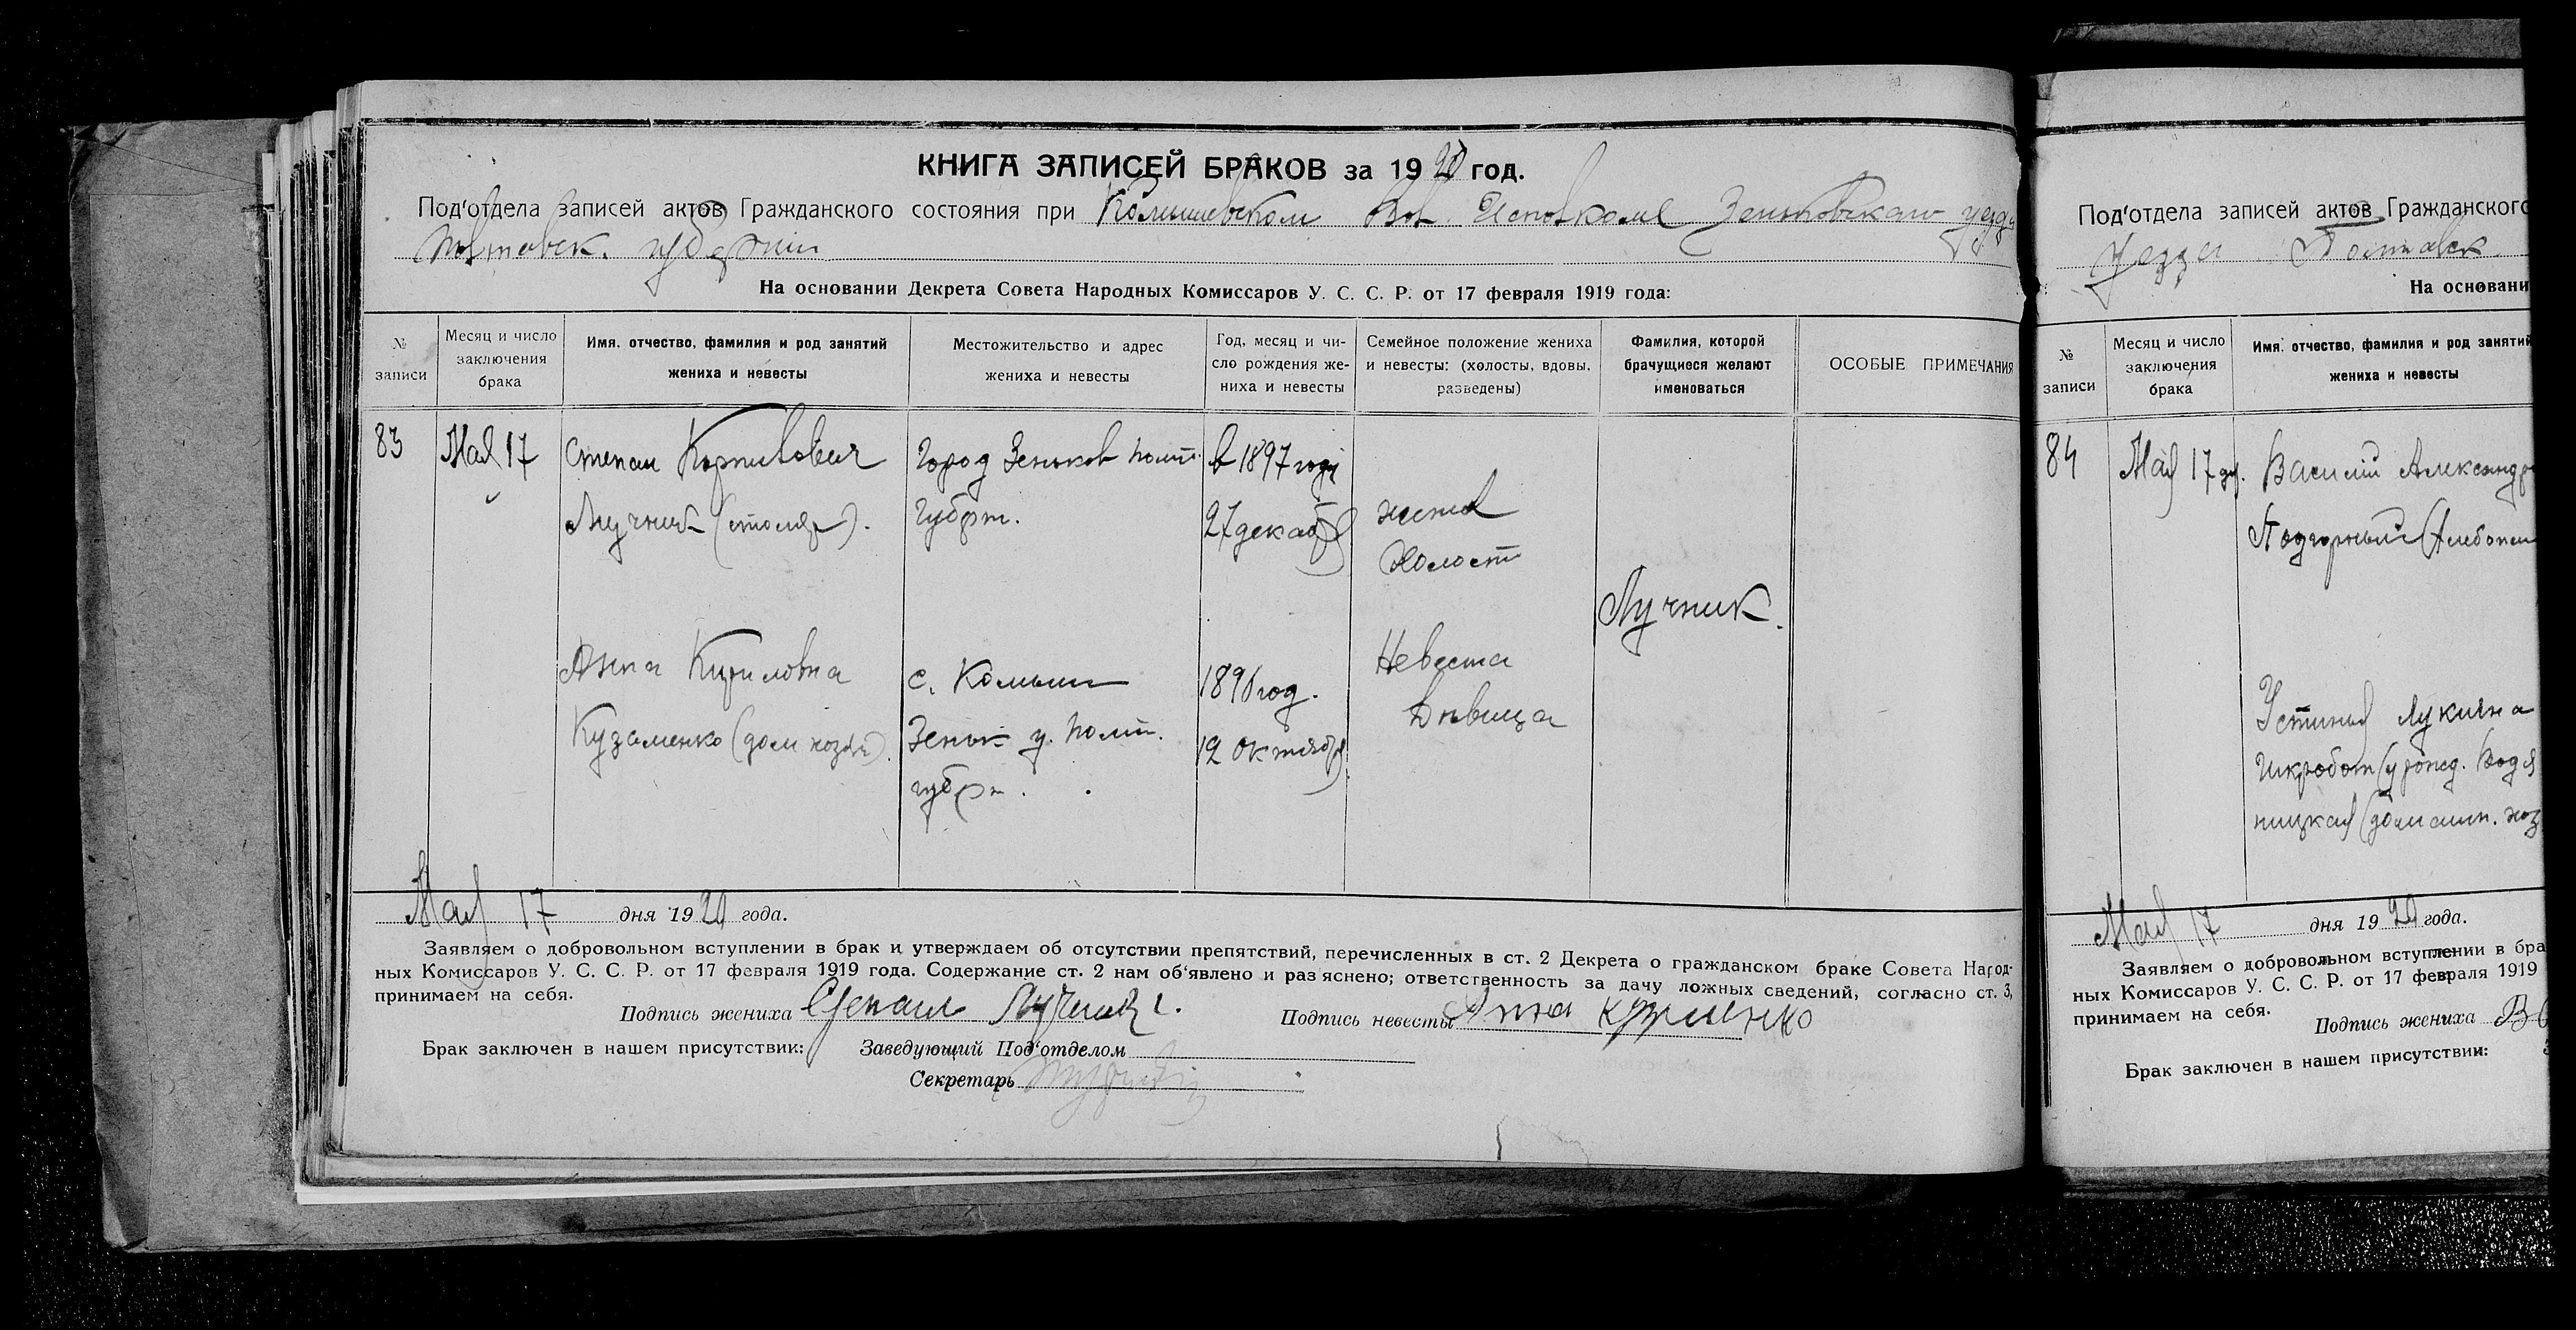 КНИГА ЗАПИСЕЙ БРАКОВ за 1920 год.
Под'отдела записей актов Гражданского состояния при Комышевском Вол. Исполкоме Зеньковскаго уезда
Полтавск. губернии
На основании Декрета Совета Народных Комиссаров У. С. С. Р. от 17 февраля 1919 года:
№ записи
Месяц и число заключения брака
Имя, отчество, фамилия и род занятий жениха и невесты
Местожительство и адрес жениха и невесты
Год, месяц и число рождения жениха и невесты
Семейное положение жениха и невесты: (холосты, вдовы, разведены)
Фамилия, которой брачущиеся желают именоваться
ОСОБЫЕ ПРИМЕЧАНИЯ
83
Мая 17
Степан Карпович
Лучник (столяр).
Город Зеньков Полт.
губрн.
в 1897 году
27 декабря
жених
Холост
Лучник.
Анна Кириловна
Кузьменко (дом. хозяй).
с. Комыши
Зеньк. у. Полт.
губрн.
1896 год.
12 октября
Невеста
Дѣвица
Мая 17 дня 1920 года.
Заявляем о добровольном вступлении в брак и утверждаем об отсутствии препятствий, перечисленных в ст. 2 Декрета о гражданском браке Совета Народ-
ных Комиссаров У. С. С. Р. от 17 февраля 1919 года. Содержание ст. 2 нам об'явлено и раз'яснено; ответственность за дачу ложных сведений, согласно ст. 3,
принимаем на себя.
Подпись жениха Степан Лучник Подпись невесты Анна Кузменко
Брак заключен в нашем присутствии: Заведующий Под'отделом
Секретарь
Под'отдела записей актов Гражданского
Уезда Полтавск
На основани
№ записи
Месяц и число заключения брака
Имя, отчество, фамилия и род занятий жениха и невесты
84
Мая 17 дн.
Василий Александр
Подгорный (хлебопаш
Устинья Лукияна
Шкробот (урожд. Водя
ницкая (домашн. хоз
Мая 17 дня 1920 года.
Заявляем о добровольном вступлении в бра
ных Комиссаров У. С. С. Р. от 17 февраля 1919
принимаем на себя.
Подпись жениха
Брак заключен в нашем присутствии: